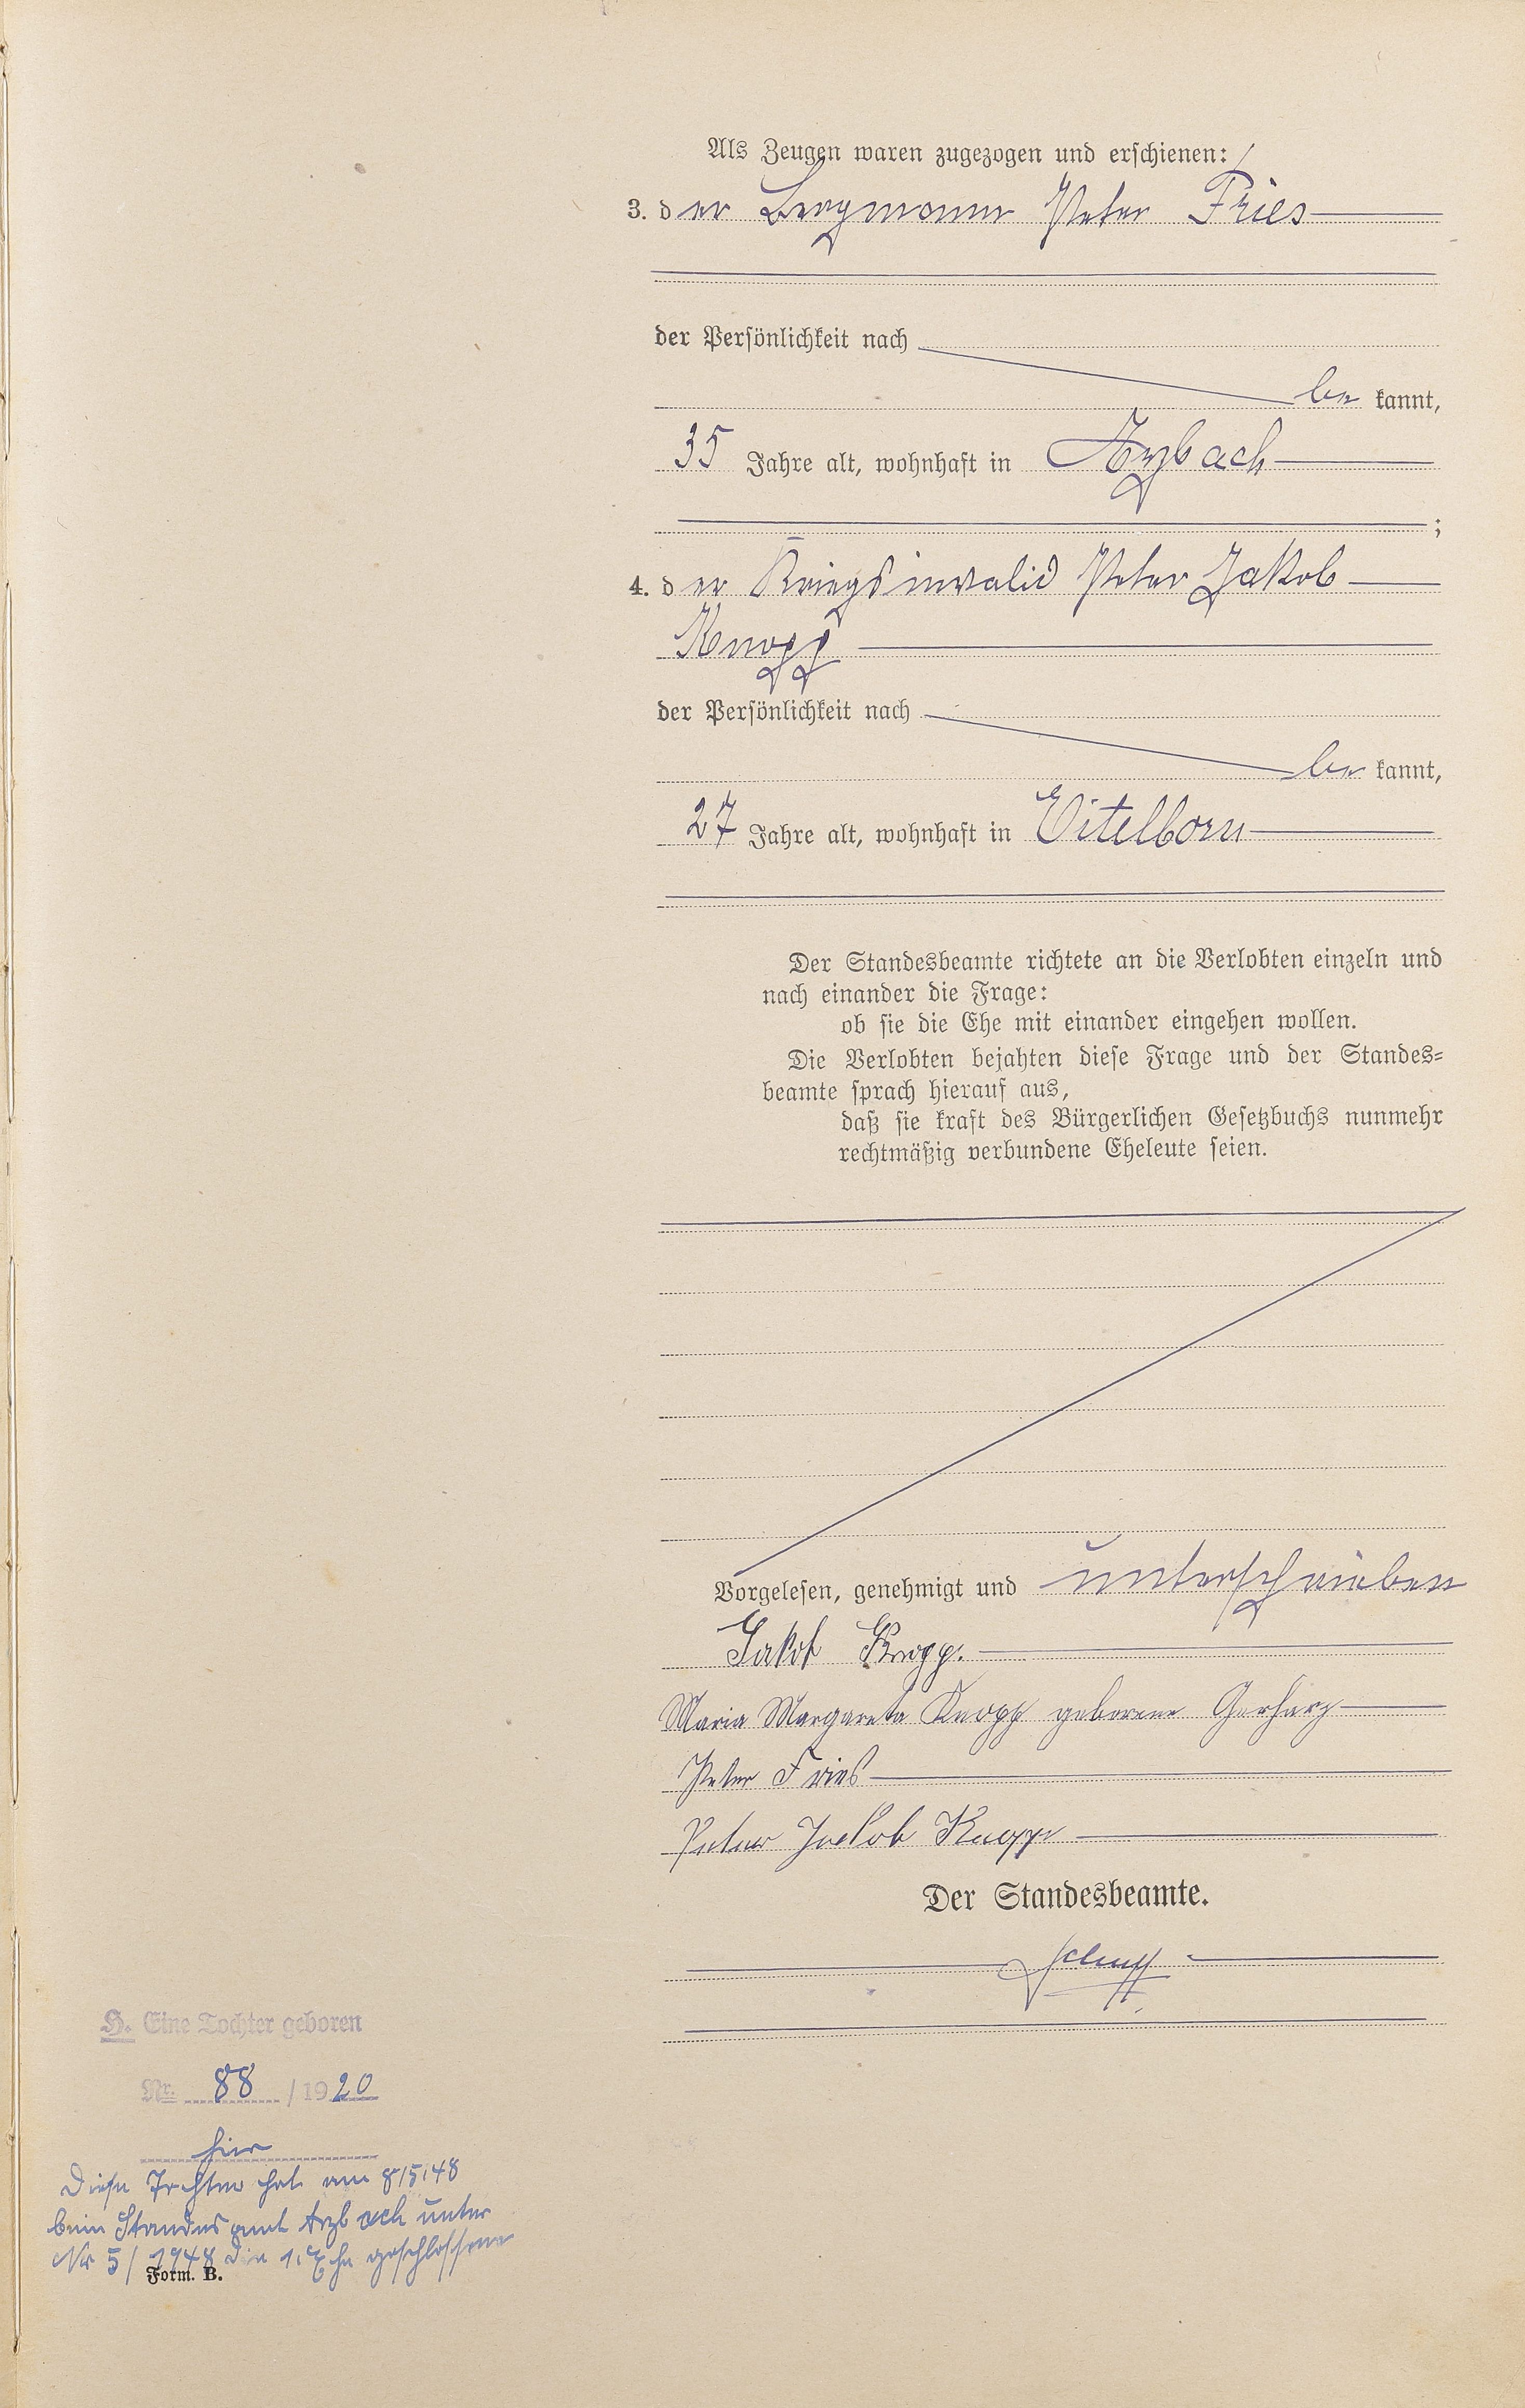 Als Zeugen waren zugezogen und erschienen:
3. der Bergmann Peter Fries
der Persönlichkeit nach
be kannt,
35 Jahre alt, wohnhaft in Arzbach
;
4. der Kriegsinvalid Peter Jakob
Knopp
der Persönlichkeit nach
be kannt,
27 Jahre alt, wohnhaft in Eitelborn
Der Standesbeamte richtete an die Verlobten einzeln und
nach einander die Frage:
ob sie die Ehe mit einander eingehen wollen.
Die Verlobten bejahten diese Frage und der Standes=
beamte sprach hierauf aus,
daß sie kraft des Bürgerlichen Gesetzbuchs nunmehr
rechtmäßig verbundene Eheleute seien.
Vorgelesen, genehmigt und unterschrieben
Jakob Knopp.
Maria Margareta Knopp geborene Gerharz
Peter Fries
Peter Jakob Knopp
Der Standesbeamte.
H. Eine Tochter geboren
Nr. 88 / 1920
hier
Diese Tochter hat am 8/5/48
beim Standesamt Arzbach unter
Nr 5/1948 die 1. Ehe geschlossen
Form. B.